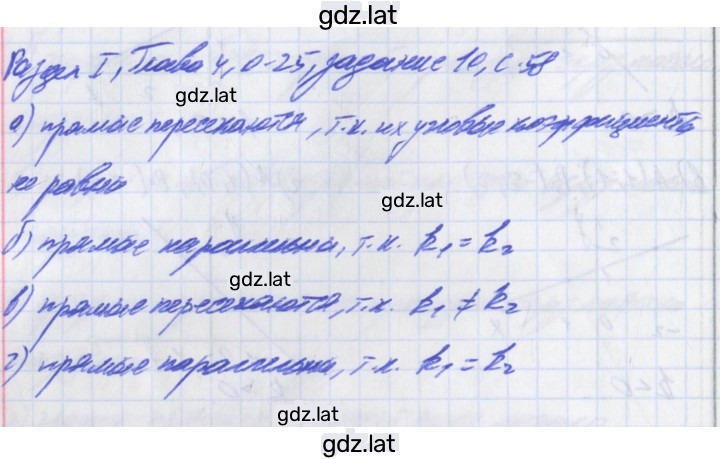 gdz.lat
Раздел I, Глава 4, О-25, задание 10, с.58
gdz.lat
а) прямые пересекаются, т.к. их угловые коэффициенты
не равны
gdz.lat
б) прямые параллельны, т.к. k₁ = k₂
gdz.lat
в) прямые пересекаются, т.к. k₁ ≠ k₂
г) прямые параллельны, т.к. k₁ = k₂
gdz.lat
gdz.lat